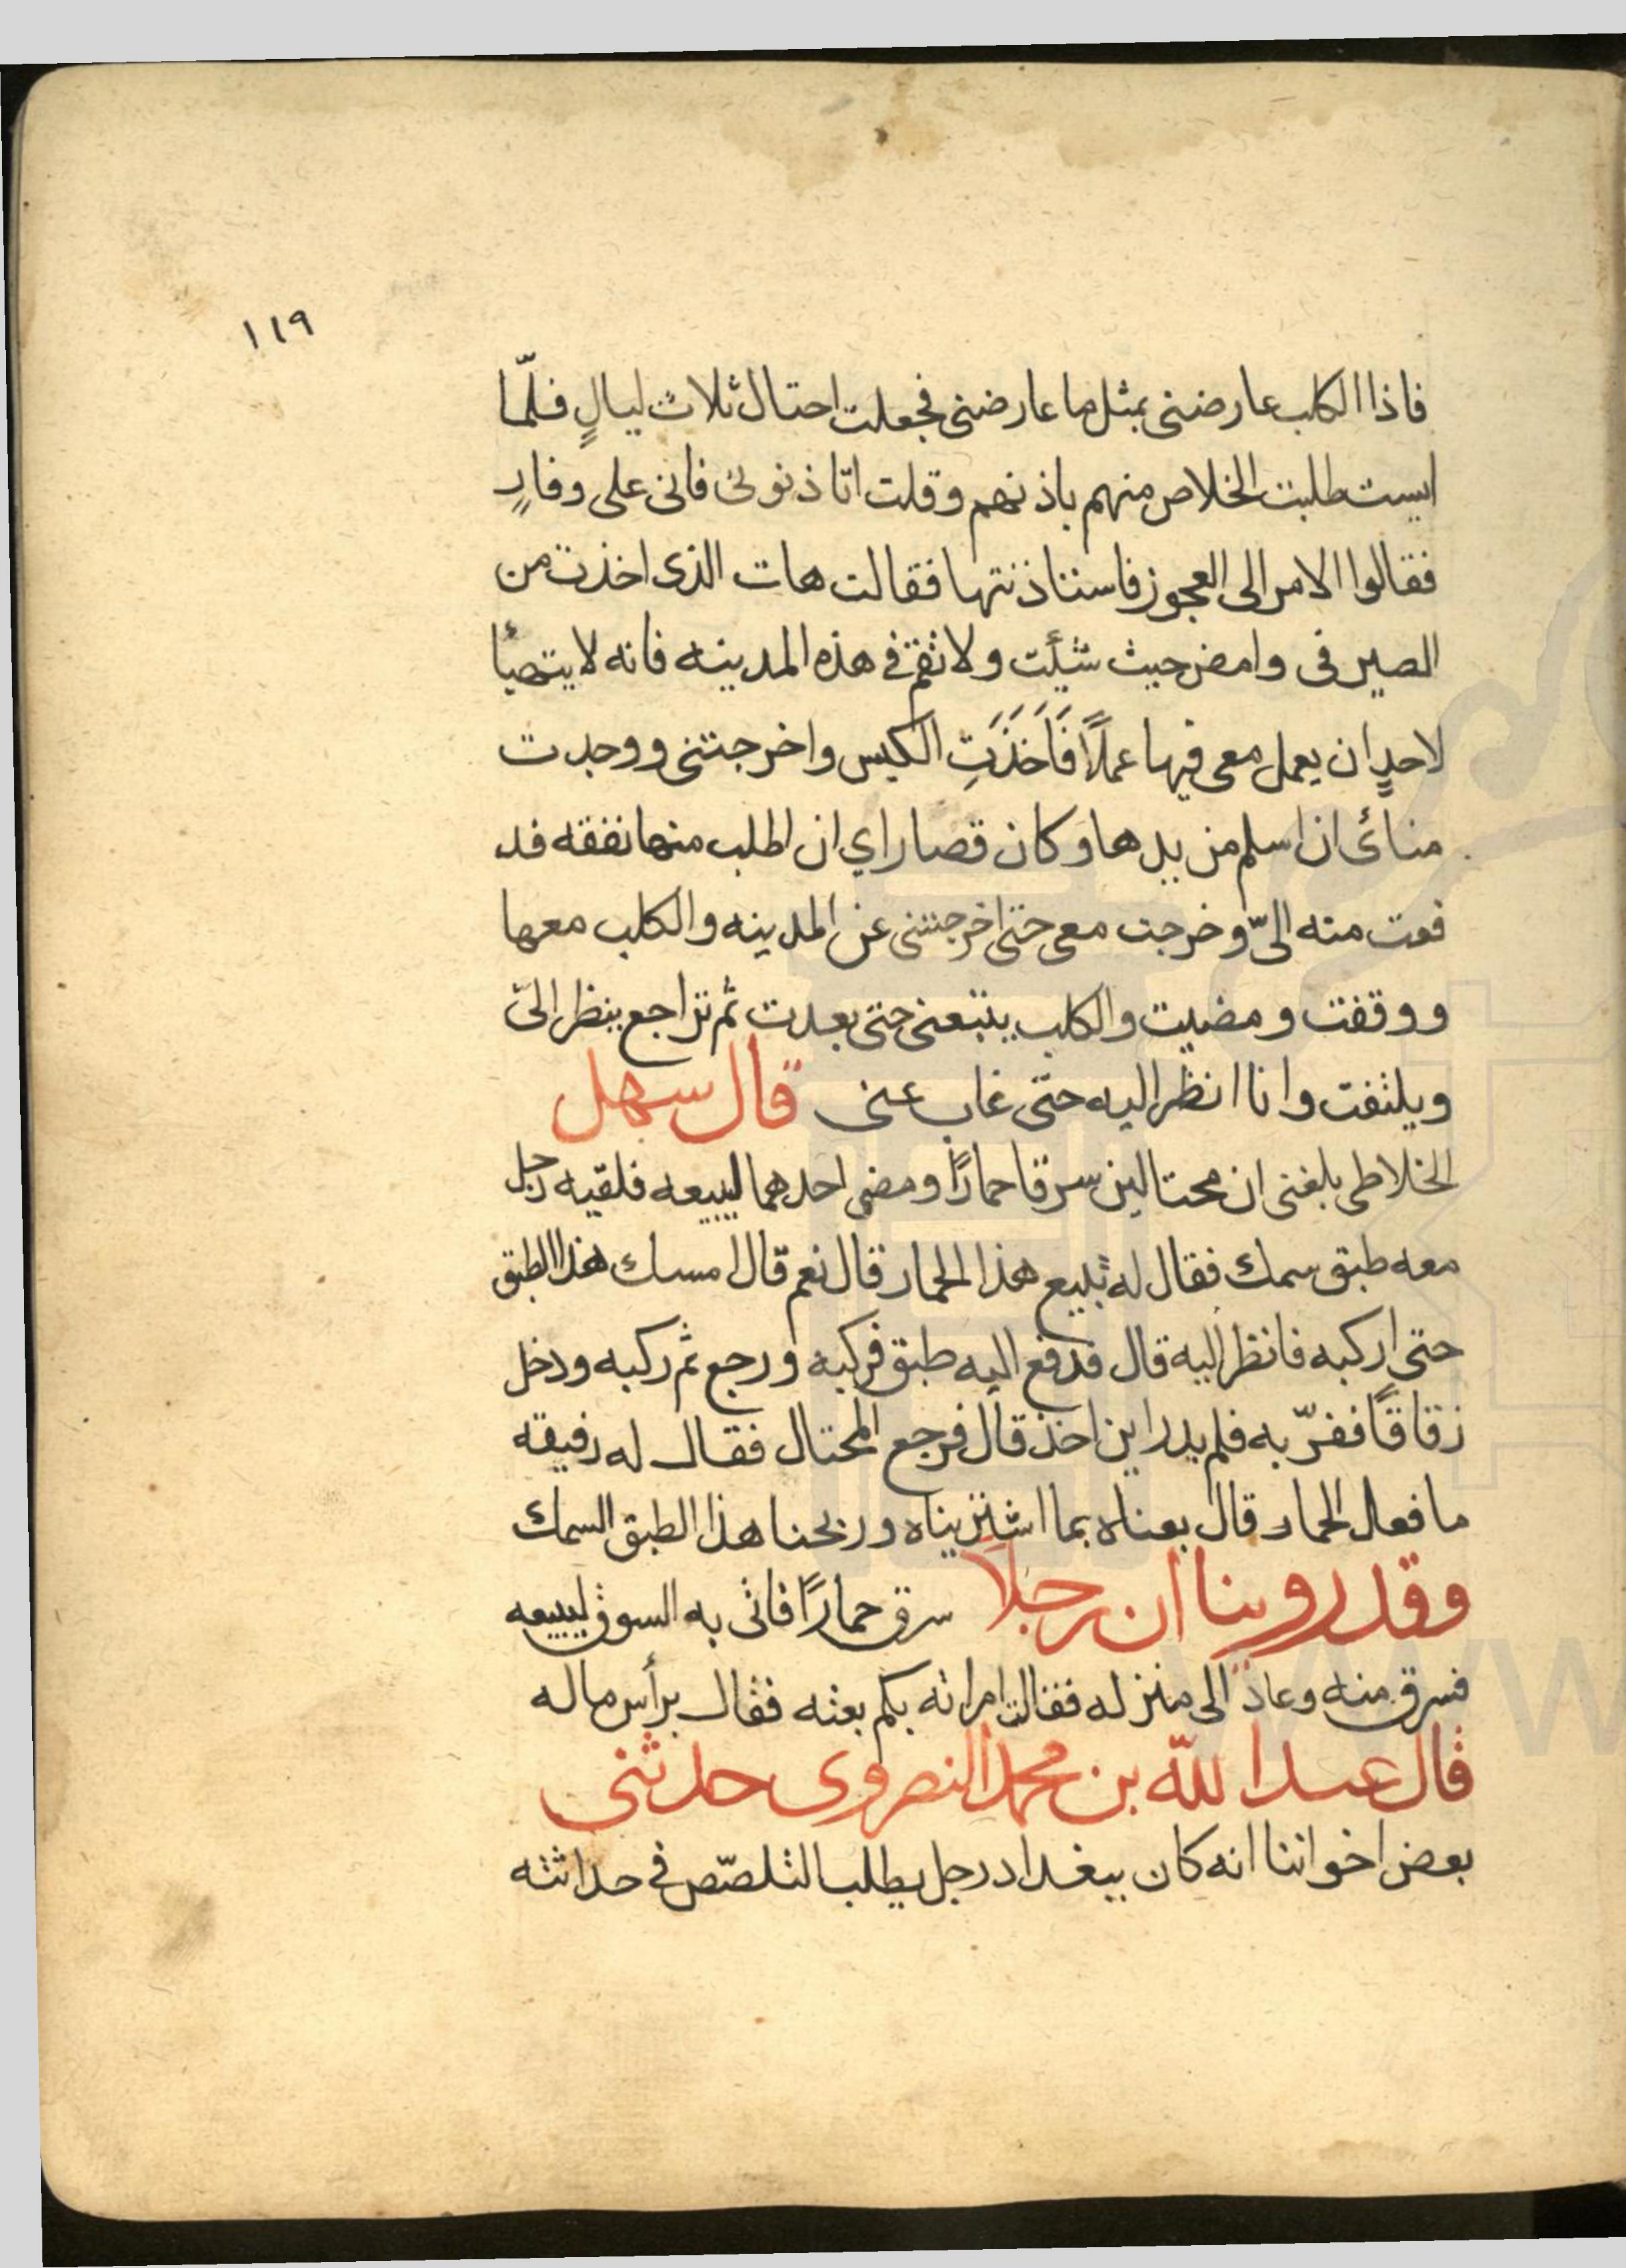 ١١٩
فاذا الكلب عارضنى بمثل ما عارضنى فجعلت احتال ثلاث ليالٍ فلمّا
ايست طلبت الخلاص منهم باذنهم وقلت اتاذنونى فانى على وفازٍ
فقالوا الامر الى العجوز فاستاذنتها فقالت هات الذى اخذت من
الصيرفى وامض حيث شئت ولا تقم فى هذه المدينه فانه لا يتهيأ
لاحدٍ ان يعمل معى فيها عملاً فَاَخَذَتِ الكيس واخرجتنى ووجدت
منائى ان اسلم من يدها وكان قصاراي ان اطلب منها نفقه فد
فعت منه الىّ وخرجت معى حتى اخرجتنى عن المدينه والكلب معها
ووقفت ومضيت والكلب يتبعنى حتى بعدت ثم تراجع ينظر الىّ
ويلتفت وانا انظر اليه حتى غاب عنى قال سهل
الخلاطى بلغنى ان محتالين سرقا حمارًا ومضى احدهما ليبيعه فلقيه رجل
معه طبق سمك فقال له تبيع هذا الحمار قال نعم قال امسك هذا الطبق
حتى اركبه فانظر اليه قال فدفع اليه طبق فركبه ورجع ثم ركبه ودخل
زقاقًا ففرّ به فلم يدر اين اخذ قال فرجع المحتال فقال له رفيقه
ما فعل الحمار قال بعناه بما اشتريناه وربحنا هذا الطبق السمك
وقد روينا ان رجلا سرق حمارًا فاتى به السوق ليبيعه
فسرق منه وعاد الى منزله فقالت امراته بكم بعته فقال برأس ماله
قال عبد الله بن محمد النصروى حدثنى
بعض اخواننا انه كان ببغداد رجل يطلب التلصّص فى حداثته